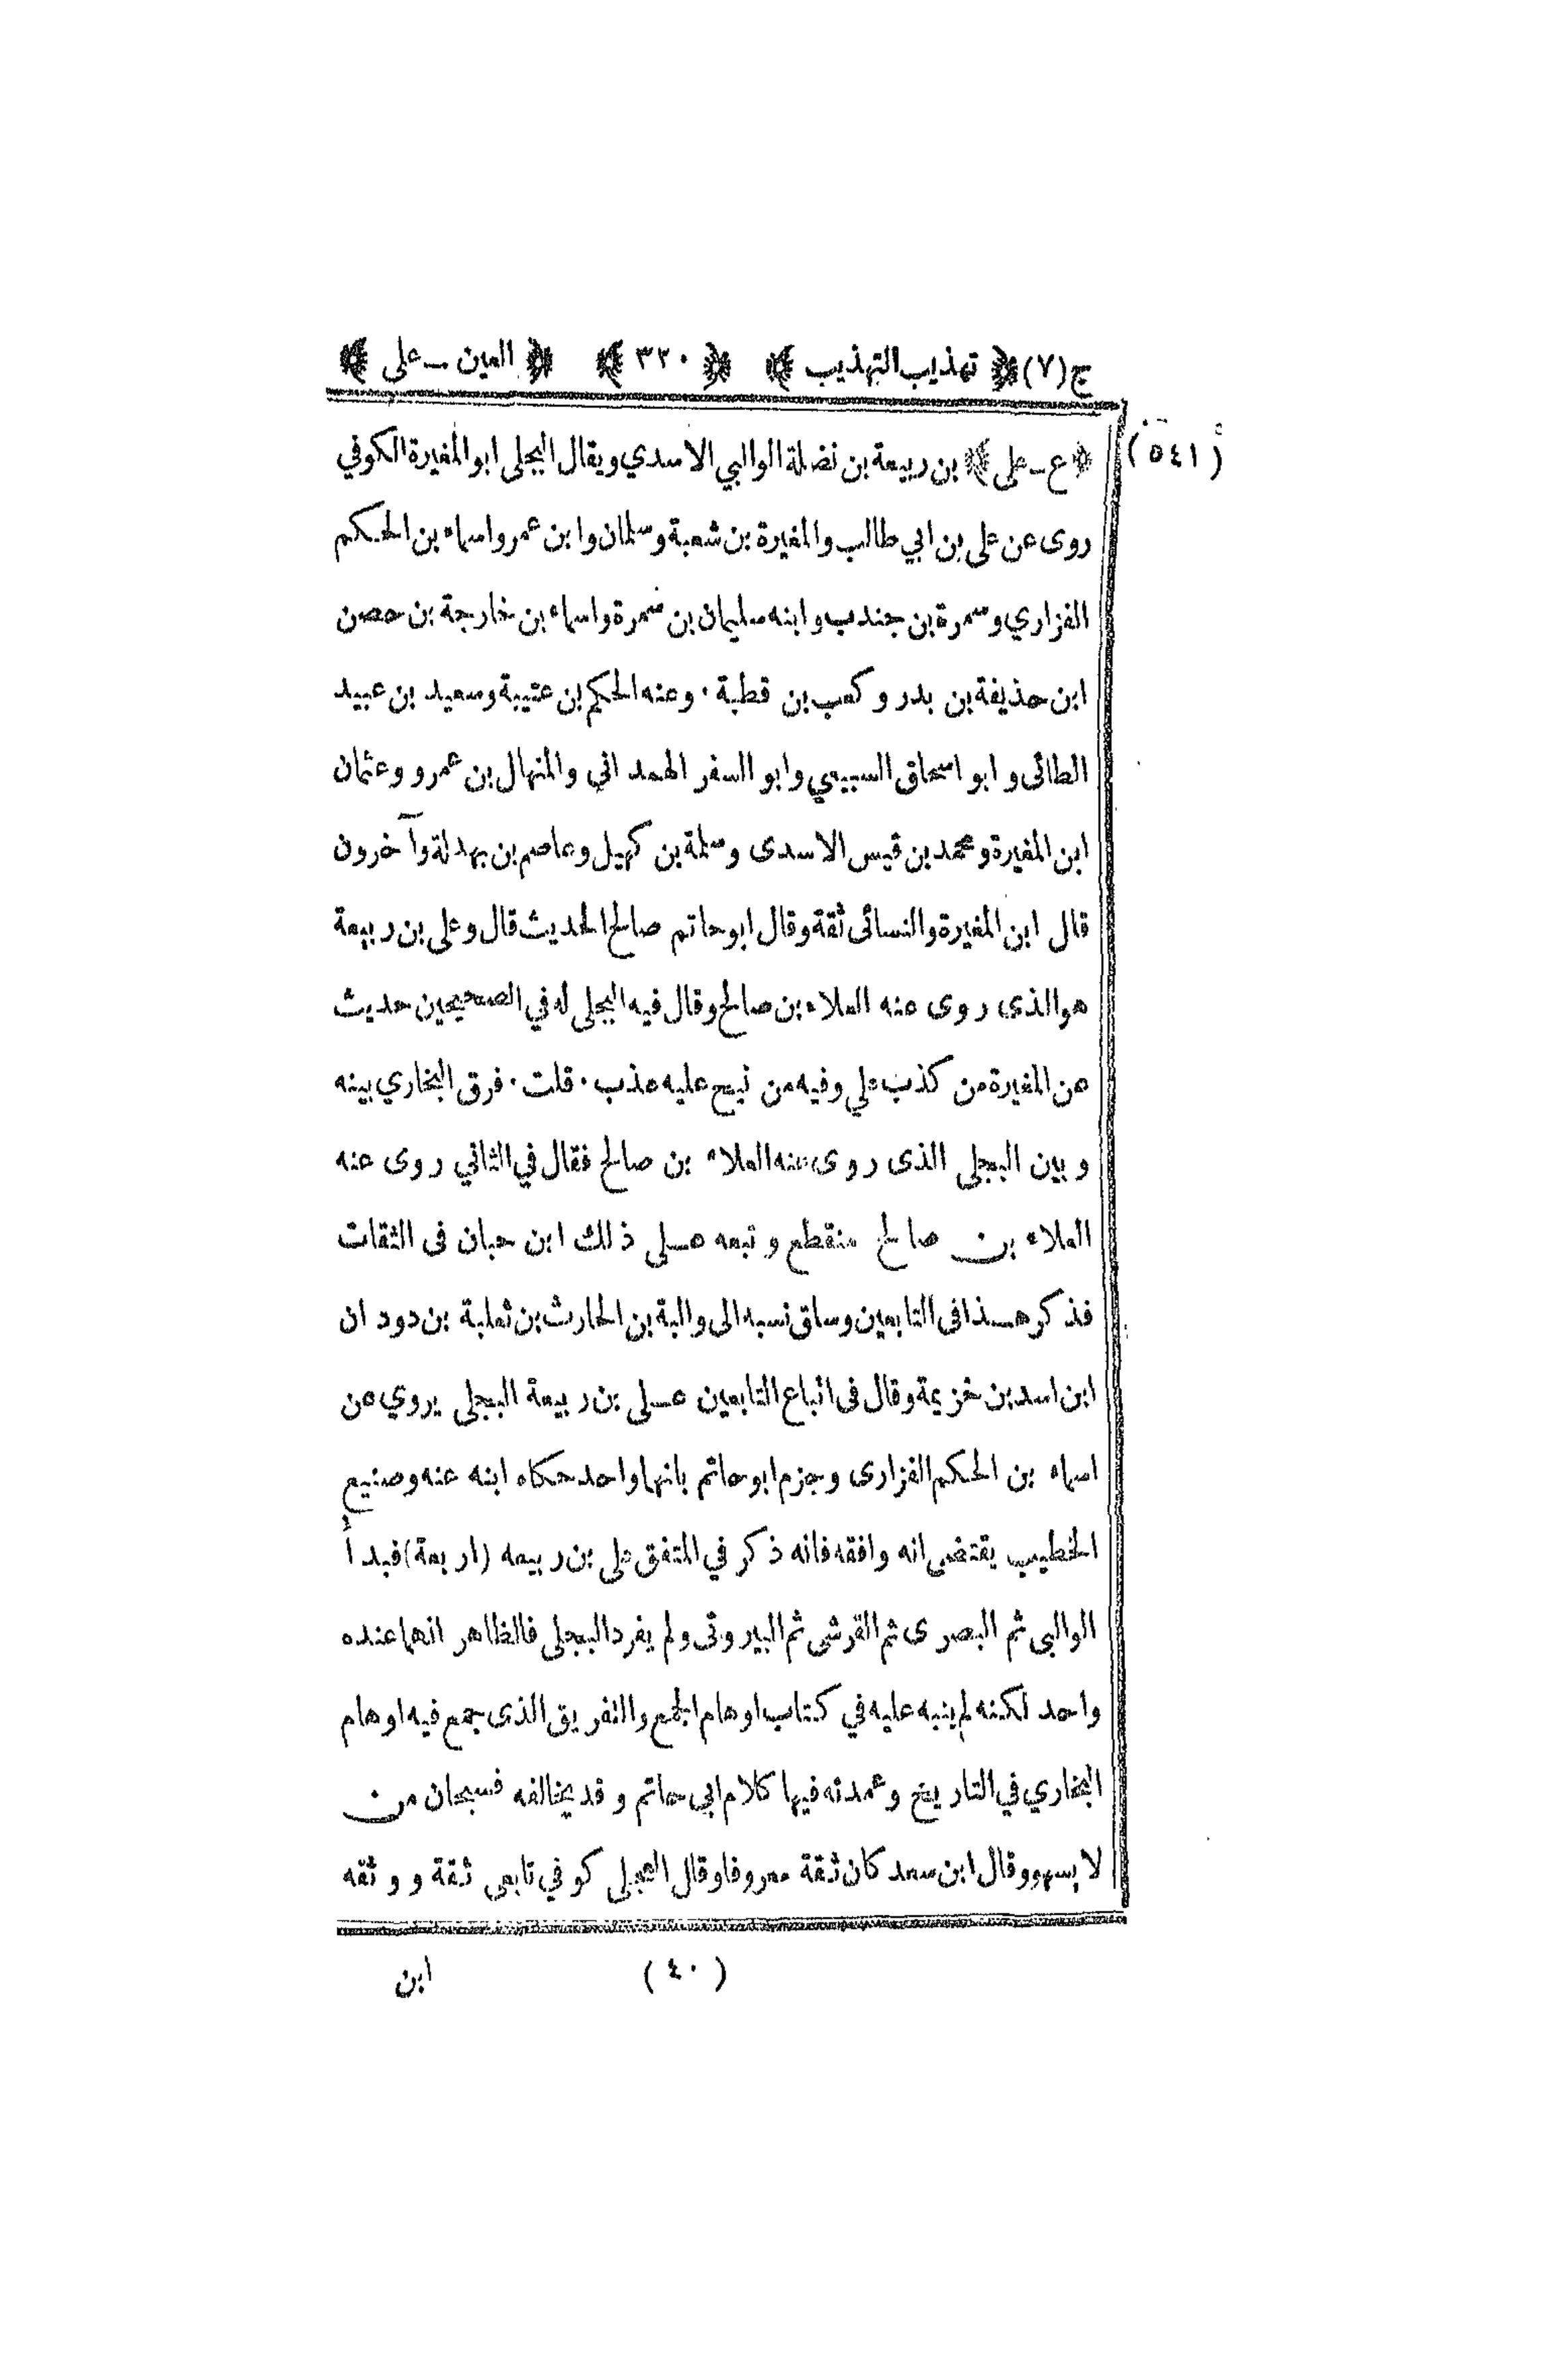 ج (٧) ﴿ تهذيب التهذيب ﴾ ﴿ ٣٢٠ ﴾ ﴿ العين ـ على ﴾
(٥٤١)
﴿ ع ـ على ﴾ بن ربيعة بن نضلة الوالبي الاسدي ويقال البجلى ابو المغيرة الكوفي
روى عن على بن ابي طالب والمغيرة بن شعبة وسلمان وابن عمر واسماء بن الحكم
الفزاري وسمرة بن جندب وابنه سليمان بن سمرة واسماء بن خارجة بن حصن
ابن حذيفة بن بدر وكعب بن قطبة ٠ وعنه الحكم بن عتيبة وسعيد بن عبيد
الطائى وابو اسحاق السبيعي وابو السفر الهمداني والمنهال بن عمرو وعثمان
ابن المغيرة ومحمد بن قيس الاسدى وسلمة بن كهيل وعاصم بن بهدلة وآخرون
قال ابن المغيرة والنسائى ثقة وقال ابو حاتم صالح الحديث قال وعلى بن ربيعة
هو الذى روى عنه العلاء بن صالح وقال فيه البجلى له في الصحيحين حديث
عن المغيرة من كذب علي وفيه من نيح عليه عذب ٠ قلت ٠ فرق البخاري بينه
وبين البجلى الذى روى عنه العلاء بن صالح فقال في الثاني روى عنه
العلاء بن صالح منقطع وتبعه عـلى ذلك ابن حبان فى الثقات
فذكر هـذا فى التابعين وساق نسبه الى والبة بن الحارث بن ثعلبة بن دودان
ابن اسد بن خزيمة وقال فى اتباع التابعين عـلى بن ربيعة البجلى يروي عن
اسماء بن الحكم الفزارى وجزم ابو حاتم بانهما واحد حكاه ابنه عنه وصنيع
الخطيب يقتضى انه وافقه فانه ذكر في المتفق على بن ربيعه (اربعة) فبدأ
الوالبى ثم البصرى ثم القرشى ثم البيروتى ولم يفرد البجلى فالظاهر انهما عنده
واحد لكنه لم ينبه عليه في كتاب اوهام الجمع والتفريق الذى جمع فيه اوهام
البخاري في التاريخ وعمدته فيها كلام ابى حاتم وقد يخالفه فسبحان من
لا يسهو وقال ابن سعد كان ثقة معروفا وقال العجلى كوفي تابعى ثقة ووثقه
(٤٠)
ابن